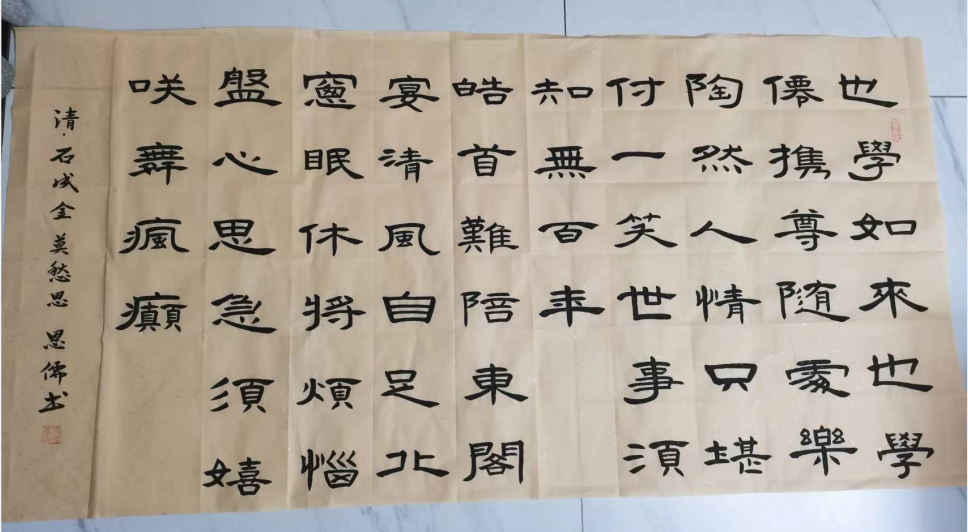 也學如來也學
僊携尊随處樂
陶然人情只堪
付一笑世事須
知無百年
皓首難陪東閣
宴清風自足北
窻眠休將煩惱
盤心思急須嬉
咲舞瘋癲
清·石成金莫愁思 思儒书